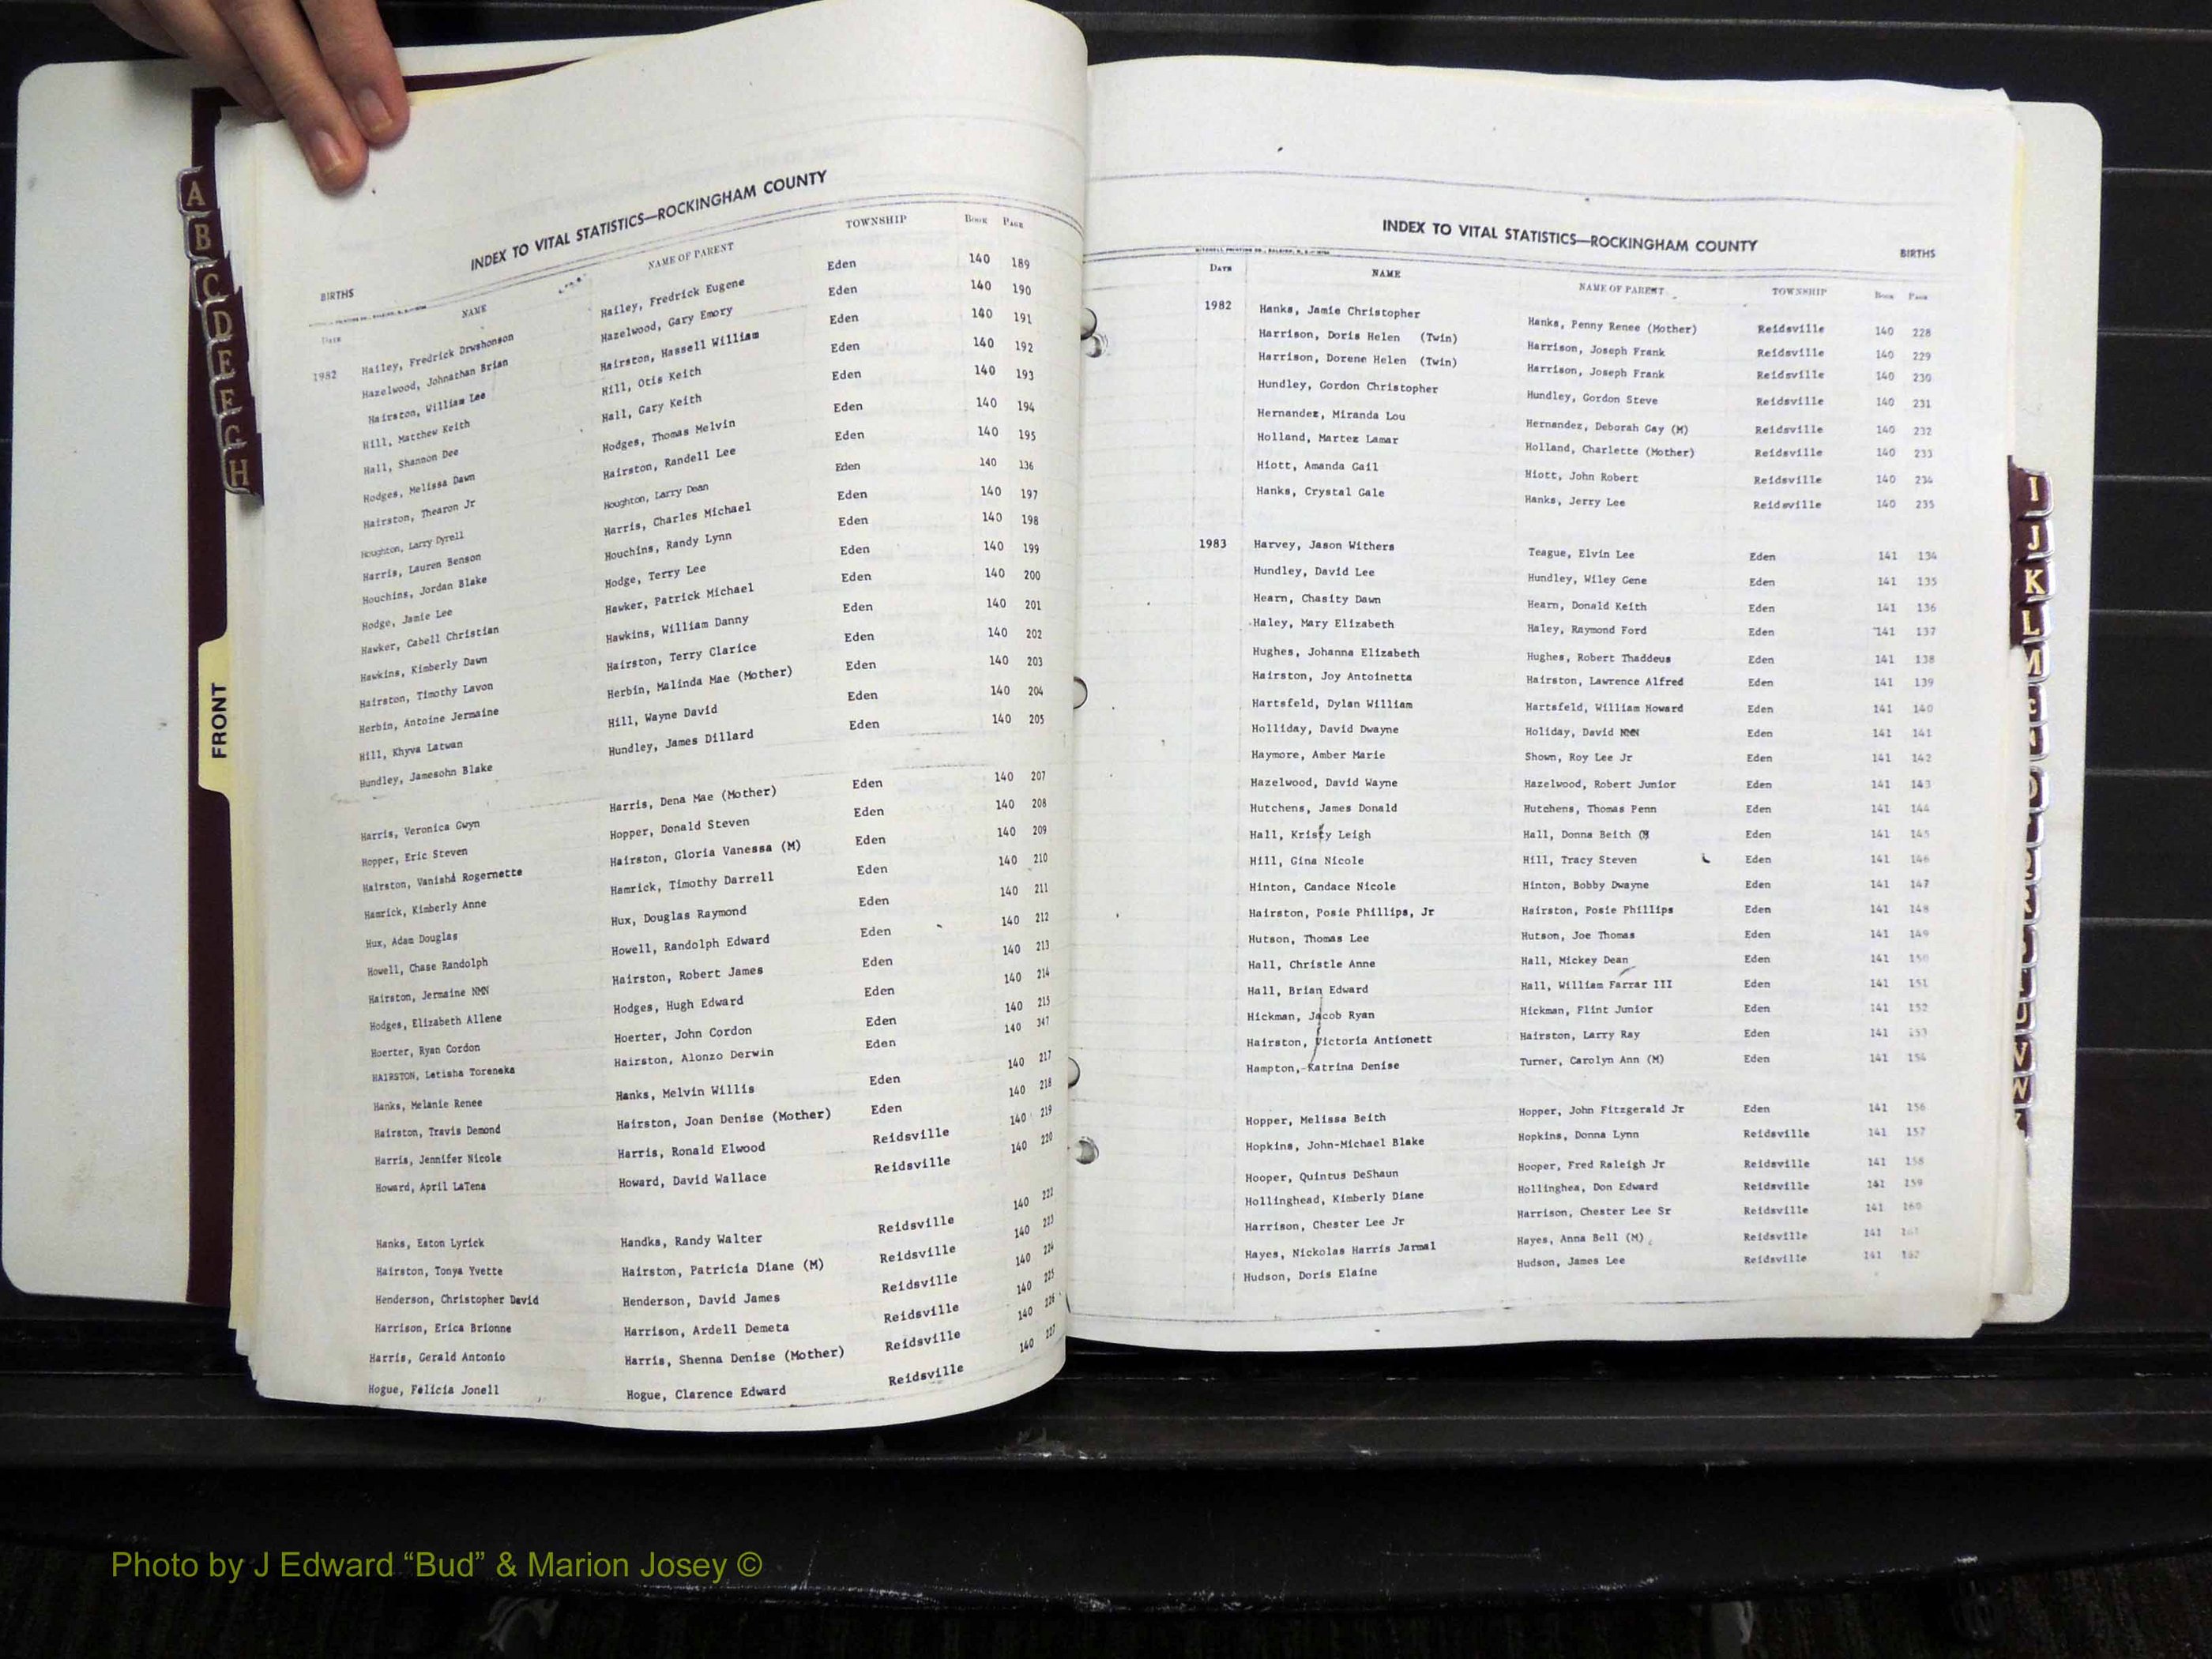 A
B
C
D
E
F
G
H
FRONT
INDEX TO VITAL STATISTICS—ROCKINGHAM COUNTY
BIRTHS
Date NAME NAME OF PARENT TOWNSHIP Book Page
1982 Hailey, Fredrick Drwshonson Hailey, Fredrick Eugene Eden 140 189
Hazelwood, Johnathan Brian Hazelwood, Gary Emory Eden 140 190
Hairston, William Lee Hairston, Hassell William Eden 140 191
Hill, Matthew Keith Hill, Otis Keith Eden 140 192
Hall, Shannon Dee Hall, Gary Keith Eden 140 193
Hodges, Melissa Dawn Hodges, Thomas Melvin Eden 140 194
Hairston, Thearon Jr Hairston, Randell Lee Eden 140 195
Houghton, Larry Dyrell Houghton, Larry Dean Eden 140 136
Harris, Lauren Benson Harris, Charles Michael Eden 140 197
Houchins, Jordan Blake Houchins, Randy Lynn Eden 140 198
Hodge, Jamie Lee Hodge, Terry Lee Eden 140 199
Hawker, Cabell Christian Hawker, Patrick Michael Eden 140 200
Hawkins, Kimberly Dawn Hawkins, William Danny Eden 140 201
Hairston, Timothy Lavon Hairston, Terry Clarice Eden 140 202
Herbin, Antoine Jermaine Herbin, Malinda Mae (Mother) Eden 140 203
Hill, Khyva Latwan Hill, Wayne David Eden 140 204
Hundley, Jamesohn Blake Hundley, James Dillard Eden 140 205
Harris, Veronica Gwyn Harris, Dena Mae (Mother) Eden 140 207
Hopper, Eric Steven Hopper, Donald Steven Eden 140 208
Hairston, Vanisha Rogernette Hairston, Gloria Vanessa (M) Eden 140 209
Hamrick, Kimberly Anne Hamrick, Timothy Darrell Eden 140 210
Hux, Adam Douglas Hux, Douglas Raymond Eden 140 211
Howell, Chase Randolph Howell, Randolph Edward Eden 140 212
Hairston, Jermaine NMN Hairston, Robert James Eden 140 213
Hodges, Elizabeth Allene Hodges, Hugh Edward Eden 140 214
Hoerter, Ryan Cordon Hoerter, John Cordon Eden 140 215
HAIRSTON, Letisha Toreneka Hairston, Alonzo Derwin Eden 140 347
Hanks, Melanie Renee Hanks, Melvin Willis Eden 140 217
Hairston, Travis Demond Hairston, Joan Denise (Mother) Eden 140 218
Harris, Jennifer Nicole Harris, Ronald Elwood Reidsville 140 219
Howard, April LaTena Howard, David Wallace Reidsville 140 220
Hanks, Eston Lyrick Handks, Randy Walter Reidsville 140 222
Hairston, Tonya Yvette Hairston, Patricia Diane (M) Reidsville 140 223
Henderson, Christopher David Henderson, David James Reidsville 140 224
Harrison, Erica Brionne Harrison, Ardell Demeta Reidsville 140 225
Harris, Gerald Antonio Harris, Shenna Denise (Mother) Reidsville 140 226
Hogue, Felicia Jonell Hogue, Clarence Edward Reidsville 140 227
INDEX TO VITAL STATISTICS—ROCKINGHAM COUNTY
BIRTHS
Date NAME NAME OF PARENT TOWNSHIP Book Page
1982 Hanks, Jamie Christopher Hanks, Penny Renee (Mother) Reidsville 140 228
Harrison, Doris Helen (Twin) Harrison, Joseph Frank Reidsville 140 229
Harrison, Dorene Helen (Twin) Harrison, Joseph Frank Reidsville 140 230
Hundley, Gordon Christopher Hundley, Gordon Steve Reidsville 140 231
Hernandez, Miranda Lou Hernandez, Deborah Gay (M) Reidsville 140 232
Holland, Martez Lamar Holland, Charlette (Mother) Reidsville 140 233
Hiott, Amanda Gail Hiott, John Robert Reidsville 140 234
Hanks, Crystal Gale Hanks, Jerry Lee Reidsville 140 235
1983 Harvey, Jason Withers Teague, Elvin Lee Eden 141 134
Hundley, David Lee Hundley, Wiley Gene Eden 141 135
Hearn, Chasity Dawn Hearn, Donald Keith Eden 141 136
Haley, Mary Elizabeth Haley, Raymond Ford Eden 141 137
Hughes, Johanna Elizabeth Hughes, Robert Thaddeus Eden 141 138
Hairston, Joy Antoinetta Hairston, Lawrence Alfred Eden 141 139
Hartsfeld, Dylan William Hartsfeld, William Howard Eden 141 140
Holliday, David Dwayne Holiday, David NMN Eden 141 141
Haymore, Amber Marie Shown, Roy Lee Jr Eden 141 142
Hazelwood, David Wayne Hazelwood, Robert Junior Eden 141 143
Hutchens, James Donald Hutchens, Thomas Penn Eden 141 144
Hall, Kristy Leigh Hall, Donna Beith (M Eden 141 145
Hill, Gina Nicole Hill, Tracy Steven Eden 141 146
Hinton, Candace Nicole Hinton, Bobby Dwayne Eden 141 147
Hairston, Posie Phillips, Jr Hairston, Posie Phillips Eden 141 148
Hutson, Thomas Lee Hutson, Joe Thomas Eden 141 149
Hall, Christle Anne Hall, Mickey Dean Eden 141 150
Hall, Brian Edward Hall, William Farrar III Eden 141 151
Hickman, Jacob Ryan Hickman, Flint Junior Eden 141 152
Hairston, Victoria Antionett Hairston, Larry Ray Eden 141 153
Hampton, Katrina Denise Turner, Carolyn Ann (M) Eden 141 154
Hopper, Melissa Beith Hopper, John Fitzgerald Jr Eden 141 156
Hopkins, John-Michael Blake Hopkins, Donna Lynn Reidsville 141 157
Hooper, Quintus DeShaun Hooper, Fred Raleigh Jr Reidsville 141 158
Hollinghead, Kimberly Diane Hollinghea, Don Edward Reidsville 141 159
Harrison, Chester Lee Jr Harrison, Chester Lee Sr Reidsville 141 160
Hayes, Nickolas Harris Jarmal Hayes, Anna Bell (M) Reidsville 141 161
Hudson, Doris Elaine Hudson, James Lee Reidsville 141 162
I
J
K
L
M
V
W
Photo by J Edward “Bud” & Marion Josey ©